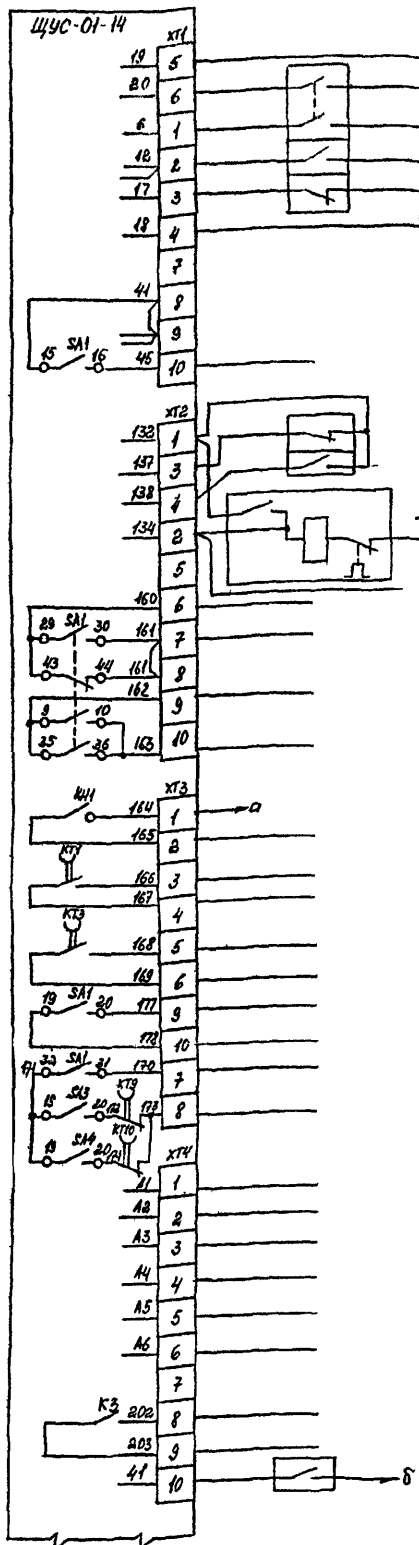 ЩУС-01-14
ХТ1
19 5
20 6
6 1
12 2
17 3
18 4
7
41 8
9
15 SA1 16 45 10
ХТ2
132 1
137 3
138 4
134 2
5
160 6
29 SA1 30 161 7
43 44 161 8
162 9
9 10
25 26 163 10
ХТ3
КН1 164 1 а
165 2
КТ7 166 3
167 4
КТ3 168 5
169 6
19 SA1 20 177 9
178 10
171 32 SA1 31 170 7
19 SA3 20 172 КТ9 173 8
19 SA4 20 174 КТ10
ХТ4
А1 1
А2 2
А3 3
А4 4
А5 5
А6 6
7
К3 202 8
203 9
41 10 б